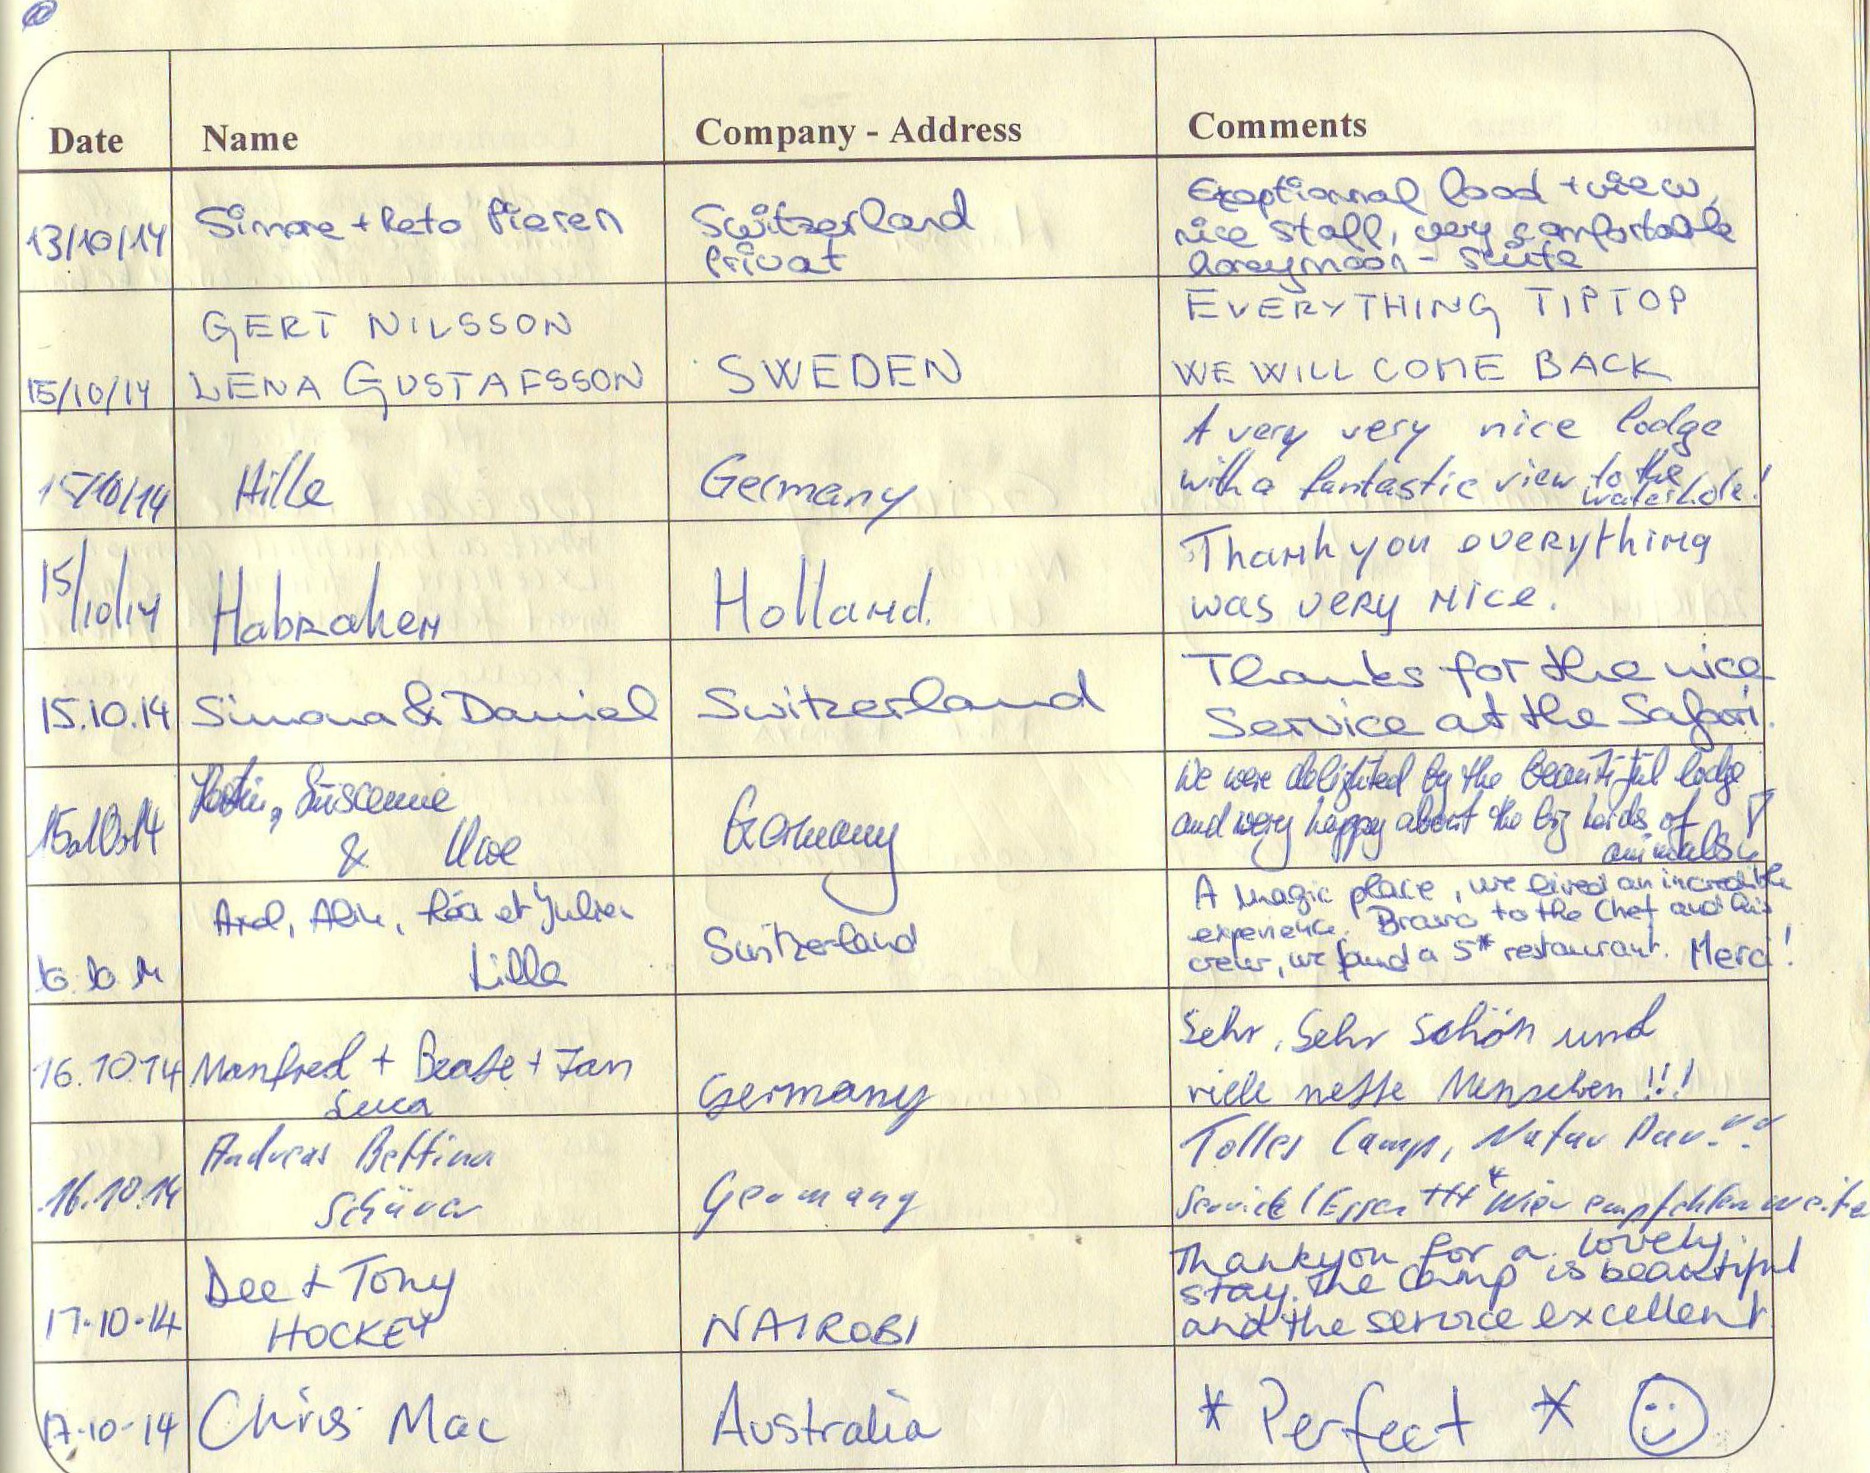 @
Date Name Company - Address Comments
13/10/14 Simone + Reto Pieren Switzerland Exeptionnal food + view,
Privat nice staff, very comfortable
honeymoon - suite
GERT NILSSON EVERYTHING TIPTOP
15/10/14 LENA GUSTAFSSON SWEDEN WE WILL COME BACK
A very very nice lodge
15/10/14 Hille Germany with a fantastic view to the
waterhole!
15/10/14 Habraken Holland. Thank you everything
was very nice.
15.10.14 Simona & Daniel Switzerland Thanks for the nice
Service at the Safari.
Susanne We were delighted by the beautiful lodge
15.10.14 & Uwe Germany and very happy about the big herds of
animals
Axel, Alin, et Julien A magic place, we lived an incredible
Switzerland experience. Bravo to the Chef and his
Lilla crew, we found a 5* restaurant. Merci!
Sehr, Sehr schön und
16.10.14 Manfred + Beate + Jan Germany viele nette Menschen!!!
Luca
Andreas Bettina Tolles Camp, Natur Pur!!
16.10.14 Schürer Germany Service / Essen +++* Wier empfehlen weite
Dee + Tony Thankyou for a lovely
stay. The camp is beautiful
17-10-14 HOCKEY NAIROBI and the service excellent
17-10-14 Chris Mac Australia * Perfect *